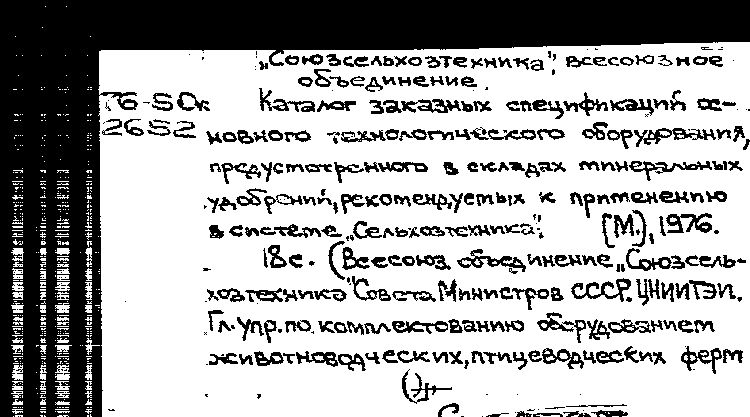 „Союзсельхозтехника", всесоюзное
объединение.
76-SOк Каталог заказных спецификаций ос-
2652 новного технологического оборудования,
предусмотренного в складах минеральных
удобрений, рекомендуемых к применению
в системе „Сельхозтехника". [М.], 1976.
18с. (Всесоюз. объединение „Союзсель-
хозтехника" Совета Министров СССР. ЦНИИТЭИ.
Гл. упр. по комплектованию оборудованием
животноводческих, птицеводческих ферм